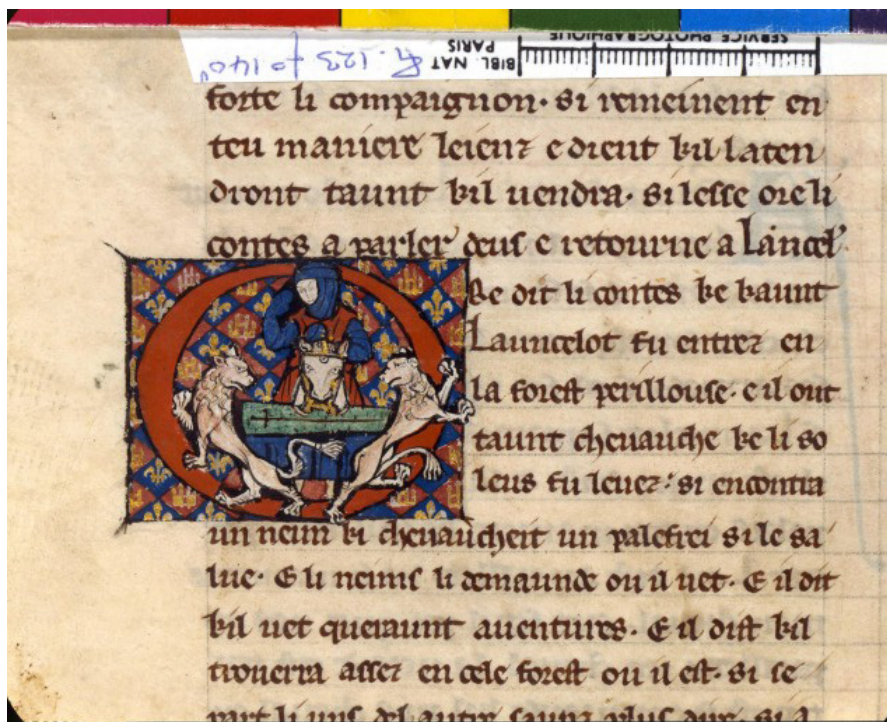 SERVICE PHOTOGRAPHIQUE
BIBL. NAT
PARIS
fr. 123 fo 140v
forte li compaignon. si remeinent en
teu maniere leienz e dient kil laten
dront taunt kil uendra. si lesse ore li
contes a parler deus e retourne a Lancel'
Se dit li contes ke kaunt
Launcelot fu entrez en
la forest perillouse. e il out
taunt cheuauche ke li so
leus fu leuez: si encontra
un neim ki cheuaucheit un palefrei si le sa
lue. E li neims li demaunde ou il uet. E il dit
kil uet queraunt auentures. E il dist kil
trouerra assez en cele forest ou il est. si se
part li uns del autre saunz plus dire. si